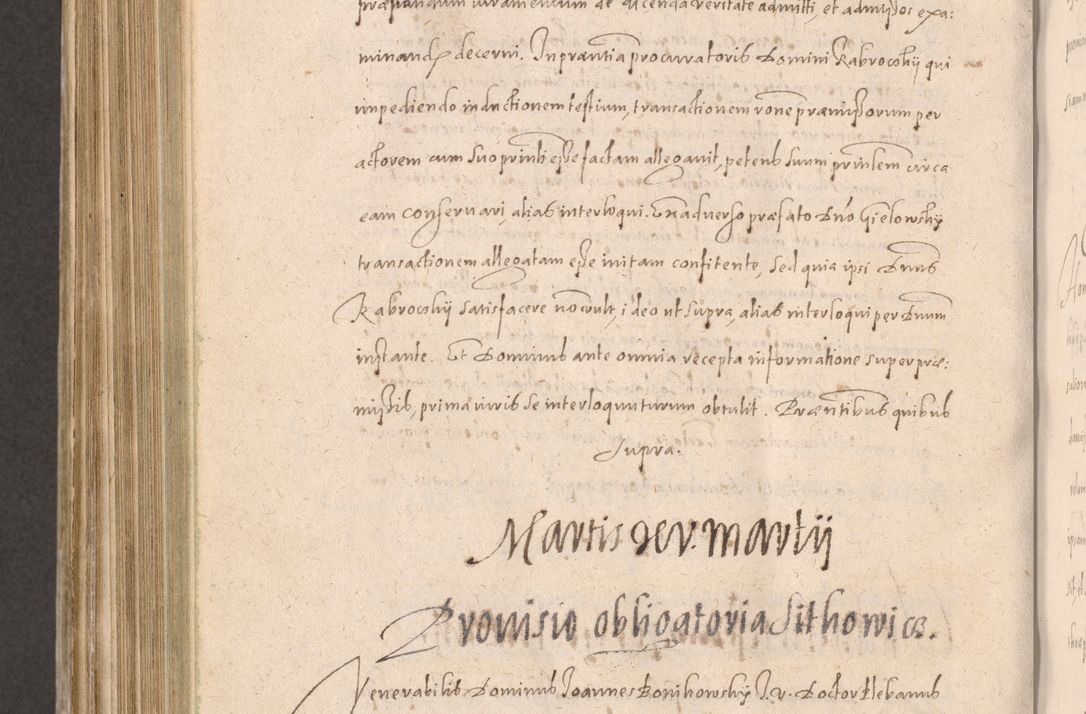 præstandum iuramentum de dicenda veritate admitti, et admissos exa:
minandos decerni. In præntia procuratoris Domini Kabrocskij qui
impediendo inductionem testium, transactionem rõne præmissorum per
actorem cum suo printi esse factam allegavit, petens suum printem circa
eam conservari alias interloqui. Ex adverso præfato Dno Gielowskij
transactionem allegatam esse initam confitente, sed quia ipsi Dnus
Kabrocskij satisfacere nõ vult, ideo ut supra, alias interloqui per Dnum
instante. Et Dominus ante omnia recepta informatione super præ:
missis, prima iuris se interloquuturum obtulit. Præntibus quibus
supra.
Martis xv. martij
Provisio obligatoria Sithowicz.
Venerabilis Dominus Joannes Conihowskij J. v. Doctor Plebanus